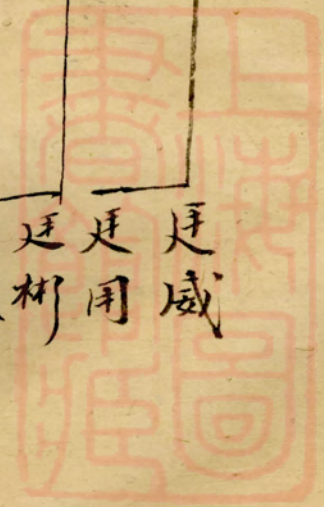 廷威
廷用
廷彬
上海圖書館藏